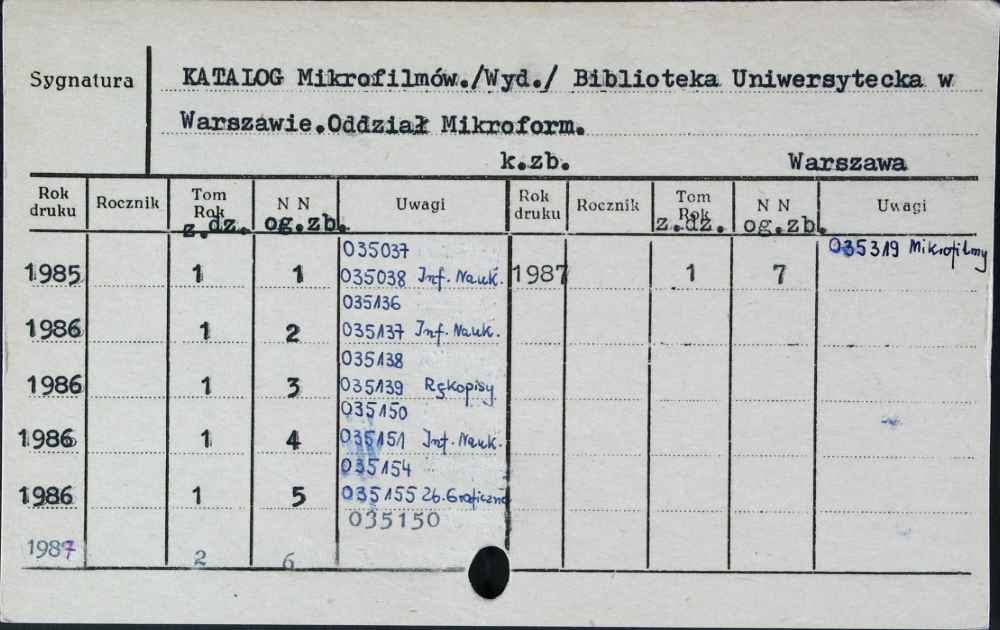 Sygnatura
KATALOG Mikrofilmów./Wyd./ Biblioteka Uniwersytecka w
Warszawie.Oddział Mikroform.
k.zb. Warszawa
Rok druku Rocznik Tom Rok z.dz. N N og.zb. Uwagi Rok druku Rocznik Tom Rok z.dz. N N og.zb. Uwagi
035037 035319 Mikrofilmy
1985 1 1 035038 Inf. Nauk. 1987 1 7
035136
1986 1 2 035137 Inf. Nauk.
035138
1986 1 3 035139 Rękopisy
035150
1986 1 4 035151 Inf. Nauk.
035154
1986 1 5 035155 Zb. Graficzne
035150
1987 2 6